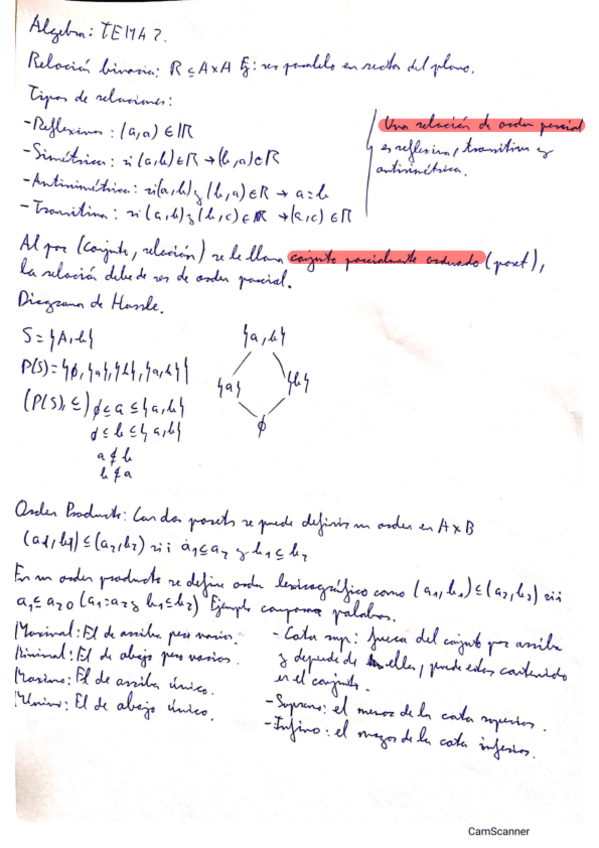 Algebra: TEMA 2.
Relación binaria: R ⊆ A×A Ej: ser paralelo en rectas del plano.
Tipos de relaciones:
-Reflexiva: (a,a) ∈ R
-Simétrica: si (a,b) ∈ R → (b,a) ∈ R
-Antisimétrica: si (a,b) y (b,a) ∈ R → a=b
-Transitiva: si (a,b) y (b,c) ∈ R → (a,c) ∈ R
Una relación de orden parcial
es reflexiva, transitiva y
antisimétrica.
Al par (conjunto, relación) se le llama conjunto parcialmente ordenado (poset),
la relación debe de ser de orden parcial.
Diagrama de Hassle.
S = {A,b}
P(S) = {∅,{a},{b},{a,b}}
(P(S), ⊆) ∅ ⊆ a ⊆ {a,b}
∅ ⊆ b ⊆ {a,b}
a ⊄ b
b ⊄ a
{a,b}
{a} {b}
∅
Orden Producto: Con dos posets se puede definir un orden en A×B
(a1,b1) ≤ (a2,b2) sii a1 ≤ a2 y b1 ≤ b2
En un orden producto se define orden lexicográfico como (a1,b1) ≤ (a2,b2) sii
a1 ≤ a2 o (a1=a2 y b1 ≤ b2) Ejemplo palabras.
Maximal: El de arriba pero varios.
Minimal: El de abajo pero varios.
Maximo: El de arriba único.
Mínimo: El de abajo único.
-Cota sup: fuera del conjunto por arriba
y depende de ellos, puede estar contenido
en el conjunto.
-Supremo: el menor de la cota superior.
-Infimo: el mayor de la cota inferior.
CamScanner